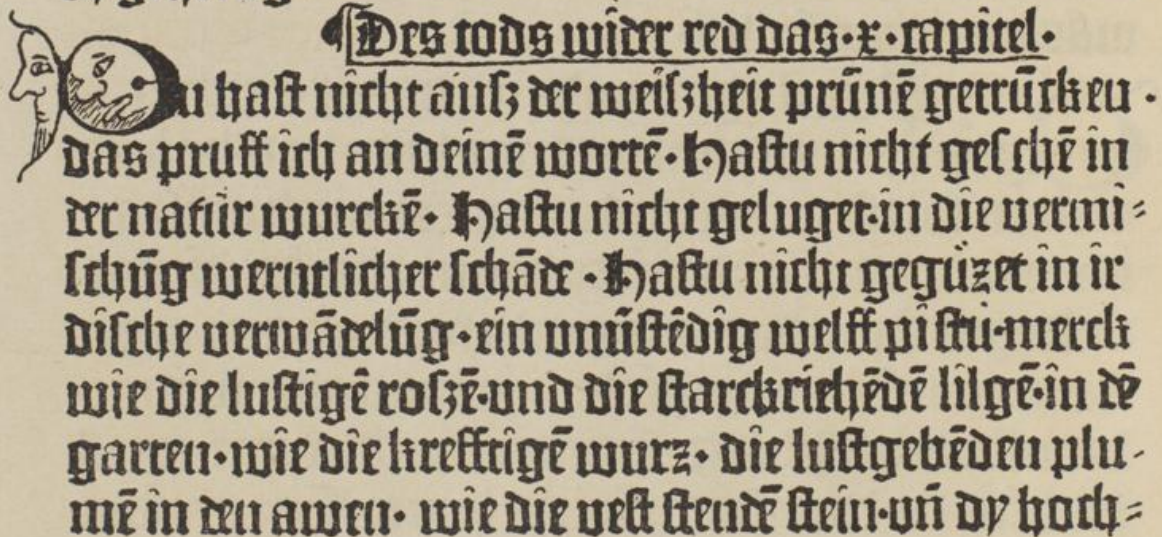 ¶Des tods wider red das·x·capitel·
Du hast nicht ausz der weiszheit prūnē getrūcken ·
das pruff ich an deinē wortē· Hastu nicht geschē in
der natur wurckē· Hastu nicht geluget·in die vermi⸗
schūg werntlicher schāde · Hastu nicht gegüzet in ir
dische verwādelūg·ein vnūstēdig welff pistu·merck
wie die lustigē roszē·und die starckriehēdē lilgē·in dē
garten·wie die krefftigē wurz· die lustgebēden plu⸗
mē in den awen· wie die vest stendē stein·uñ dy hoch⸗